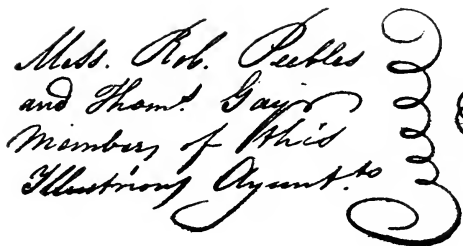 Mess. Rob. Peebles
and Thom.s Gay
Members of this
Illustrious Ayunt.to